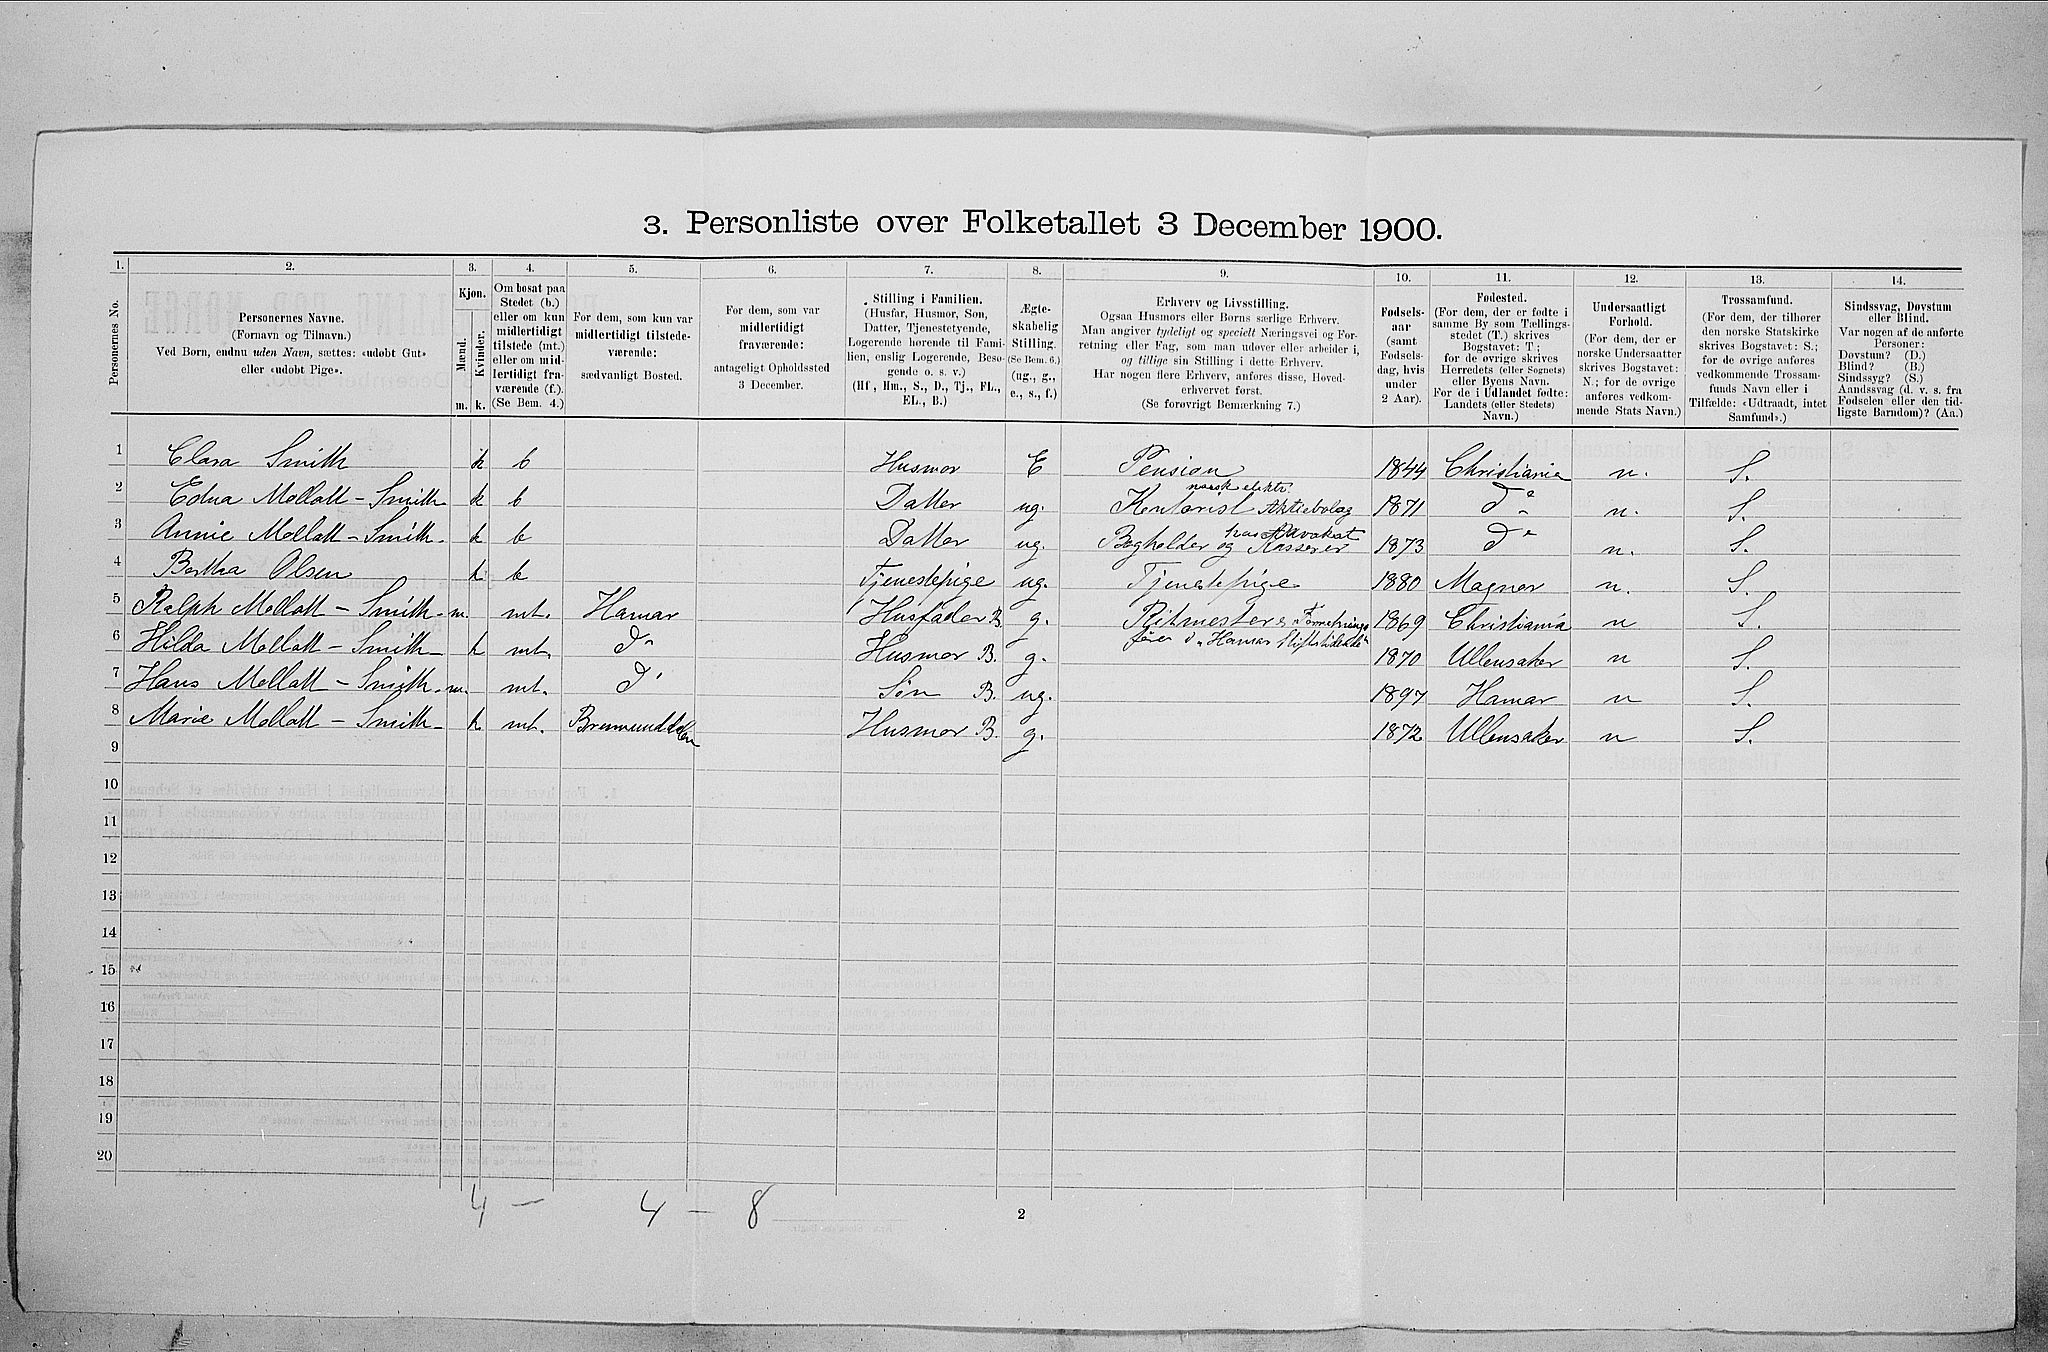 3. Personliste over Folketallet 3 December 1900.
1. 2. 3. 4. 5. 6. 7. 8. 9. 10. 11. 12. 13. 14.
Personernes No.
Personernes Navne.
(Fornavn og Tilnavn.)
Ved Børn, endnu uden Navn, sættes: «udøbt Gut»
eller «udøbt Pige».
Kjøn.
Mænd.
Kvinder.
m. k.
Om bosat paa
Stedet (b.)
eller om kun
midlertidigt
tilstede (mt.)
eller om mid-
lertidigt fra-
værende (f.).
(Se Bem. 4.)
For dem, som kun var
midlertidigt tilstede-
værende:
sædvanligt Bosted.
For dem, som var
midlertidigt
fraværende:
antageligt Opholdssted
3 December.
Stilling i Familien.
(Husfar, Husmor, Søn,
Datter, Tjenestetyende,
Logerende hørende til Fami-
lien, enslig Logerende, Besø-
gende o. s. v.)
(Hf, Hm., S., D., Tj., FL.,
EL., B.)
Ægte-
skabelig
Stilling.
(Se Bem. 6.)
(ug., g.,
e., s., f.)
Erhverv og Livsstilling.
Ogsaa Husmors eller Børns særlige Erhverv.
Man angiver tydeligt og specielt Næringsvei og For-
retning eller Fag, som man udøver eller arbeider i,
og tillige sin Stilling i dette Erhverv.
Har nogen flere Erhverv, anføres disse, Hoved-
erhvervet først.
(Se forøvrigt Bemærkning 7.)
Fødsels-
aar
(samt
Fødsels-
dag, hvis
under
2 Aar).
Fødested.
(For dem, der er fødte i
samme By som Tællings-
stedet (T.) skrives
Bogstavet: T;
for de øvrige skrives
Herredets (eller Sognets)
eller Byens Navn.
For de i Udlandet fødte:
Landets (eller Stedets)
Navn.)
Undersaatligt
Forhold.
(For dem, der er
norske Undersaatter
skrives Bogstavet:
N.; for de øvrige
anføres vedkom-
mende Stats Navn.)
Trossamfund.
(For dem, der tilhører
den norske Statskirke
skrives Bogstavet: S.;
for de øvrige anføres
vedkommende Trossam-
funds Navn eller i
Tilfælde: «Udtraadt, intet
Samfund».)
Sindssvag, Døvstum
eller Blind.
Var nogen af de anførte
Personer:
Døvstum? (D.)
Blind? (B.)
Sindssyg? (S.)
Aandssvag (d. v. s. fra
Fødselen eller den tid-
ligste Barndom)? (Aa.)
1 Clara Smith k b Husmor E Pension 1844 Christiania n. S.
norsk elektr.
2 Edna Mollatt - Smith k b Datter ug. Kontorist Aktiebolag 1871 do n. S.
hos Advokat
3 Annie Mollatt - Smith. k b Datter ug. Bogholder og Kasserer 1873 do n. S.
4 Bertha Olsen k b Tjenestepige ug. Tjenestepige 1880 Magnor n. S.
5 Ralph Mollatt - Smith. m. mt. Hamar Husfader B. g. Ritmester & Forretnings 1869 Christiania n S.
fører v "Hamar Stiftstidende"
6 Hilda Mollatt - Smith k mt. do Husmor B. g. 1870 Ullensaker n S.
7 Hans Mollatt - Smith. m. mt. do Søn B. ug. 1897 Hamar n S.
8 Marie Mollatt - Smith k mt. Brummunddalen Husmor B. g. 1872 Ullensaker n S.
9
10
11
12
13
14
15
16
17
18
19
20
4 - 4 - 8
2